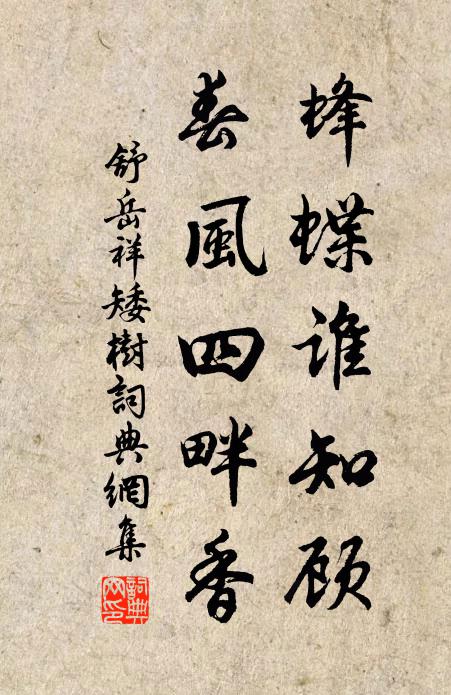 蜂蝶谁知顾
春風四畔香
舒岳祥矮樹詞典網集
詞典网印